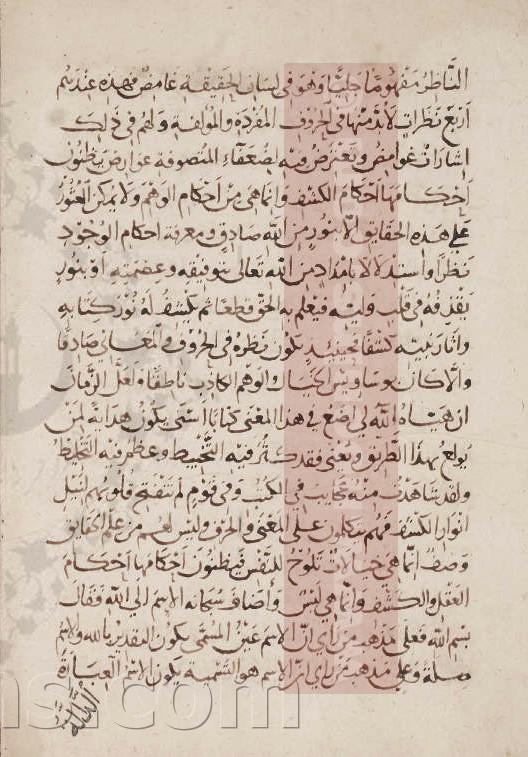 الناظر مفهوما جليا وهو في لسان الحقيقة غامض فهذه عندهم
اربع نظرات لا بد منها في الحروف المفردة والمؤلفة ولهم في ذلك
اشارات غوامض ويعترض فيه لضعفاء المتصوفة عوارض يظنون
احكامها احكام الكشف وانما هي من احكام الوهم ولا يمكن العثور
على هذه الحقايق الا بنور من الله صادق ومعرفة احكام الوجود
نظرا واستدلالا بامداد من الله تعالى بتوفيقه وعصمته او بنور
يقذفه في قلب وليه فيعلم به الحق قطعا ثم يكشف له نور كتابه
واثار نبيه كشفا فحينئذ يكون نظره في الحروف والمعاني صادقا
والا كان بوساويس الخيال والوهم الكاذب ناطقا ولعل الزمان
ان هيأه الله لي اضع في هذا المعنى كتابا اسنى يكون هداية لمن
يولع بهذا الطريق ويعنى فقد كثر فيه التخبيط وعظم فيه التخليط
ولقد شاهدت منه عجايب في الكتب وفي قوم لم تنفتح قلوبهم لنيل
انوار الكشف فهم يتكلمون على المعنى والحرف وليس لهم من علم الحقايق
وصف انما هي خيالات تلوح للنفس فيظنون احكامها احكام
العقل والكشف وانما هي لبس واضاف سبحانه الاسم الى الله فقال
بسم الله فعلى مذهب من راي ان الاسم عين المسمى يكون التقدير بالله والاسم
صلة وعلى مذهب من راي ان الاسم هو التسمية يكون الاسم العبارة